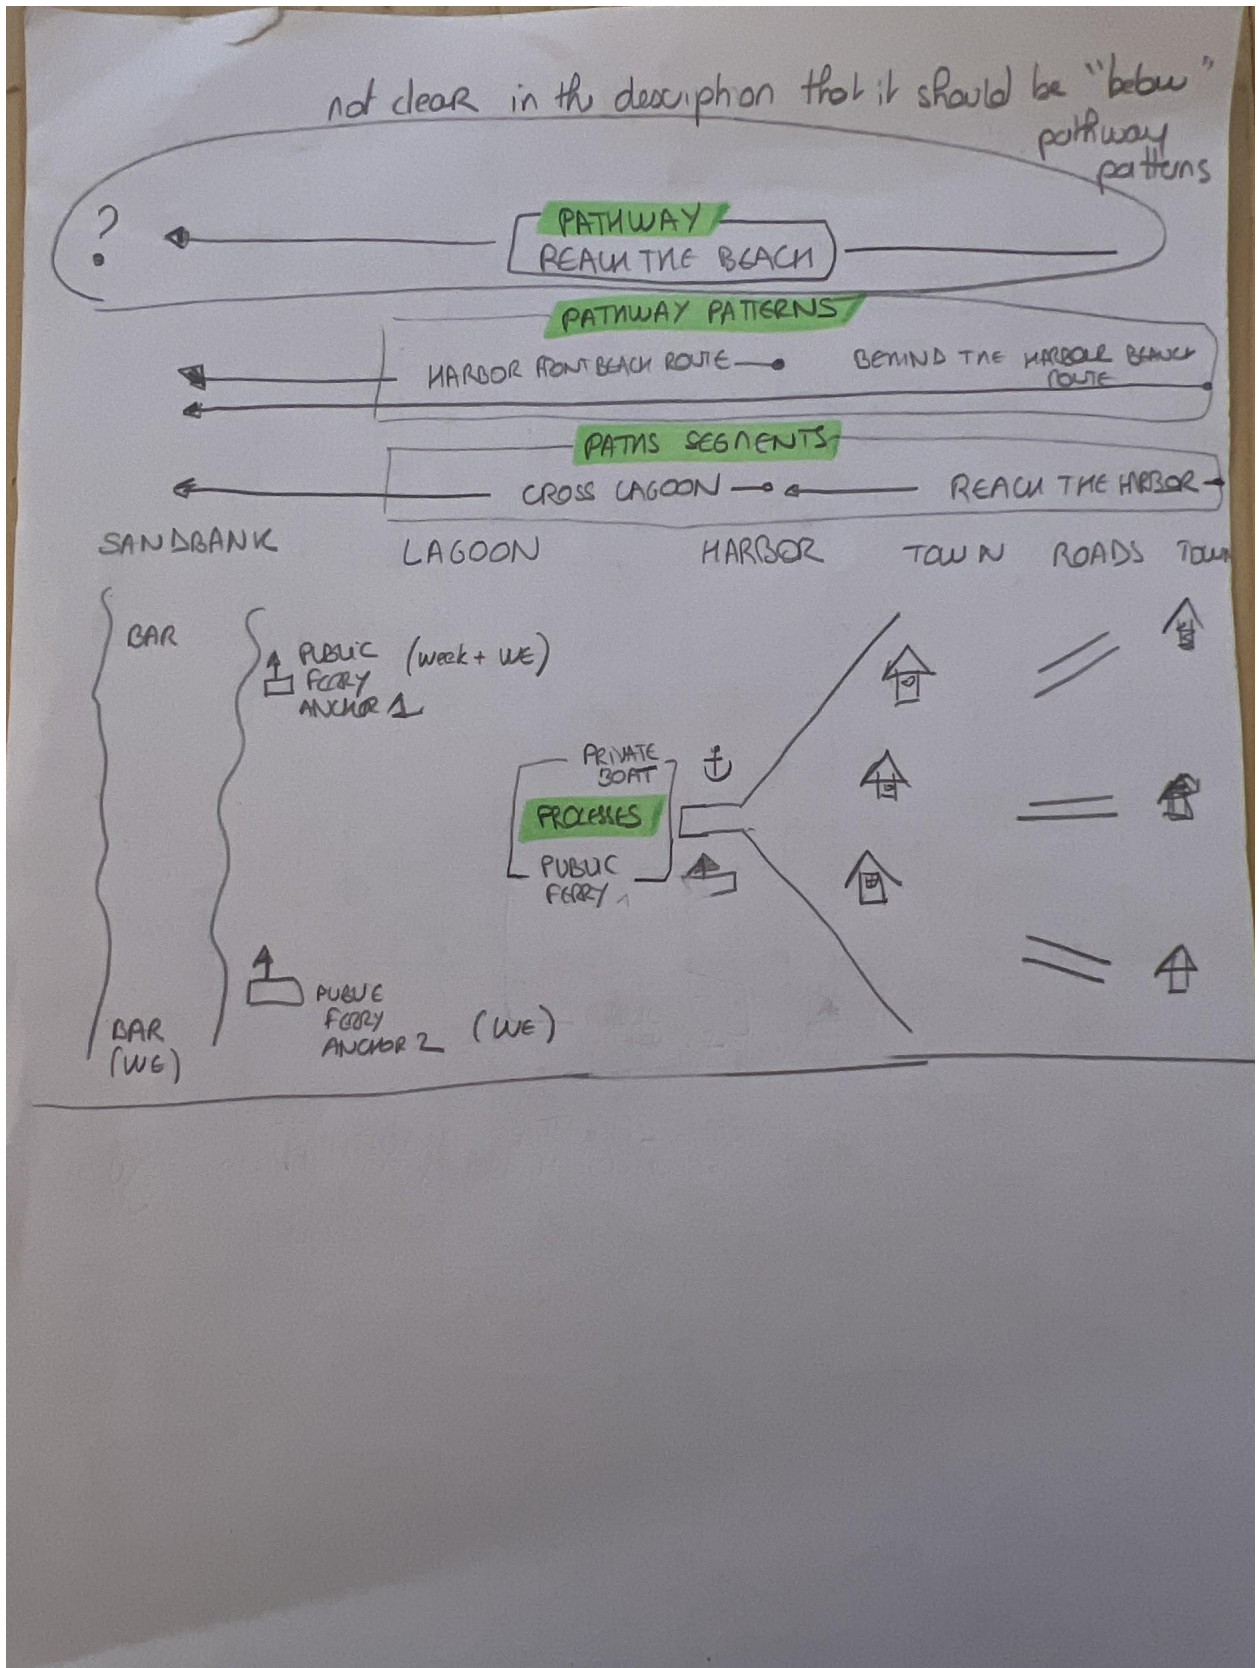 not clear in the desciption that it should be "below"
pathway
patterns
?
PATHWAY
REACH THE BEACH
PATHWAY PATTERNS
HARBOR FRONT BEACH ROUTE
BEHIND THE HARBOUR BEANCH
ROUTE
PATHS SEGMENTS
CROSS LAGOON
REACH THE HARBOR
SANDBANK LAGOON HARBOR TOWN ROADS TOWN
BAR
PUBLIC (week + WE)
FERRY
ANCHOR 1
PRIVATE
BOAT
PROCESSES
PUBLIC
FERRY
PUBLIC
FERRY (WE)
ANCHOR 2
BAR
(WE)